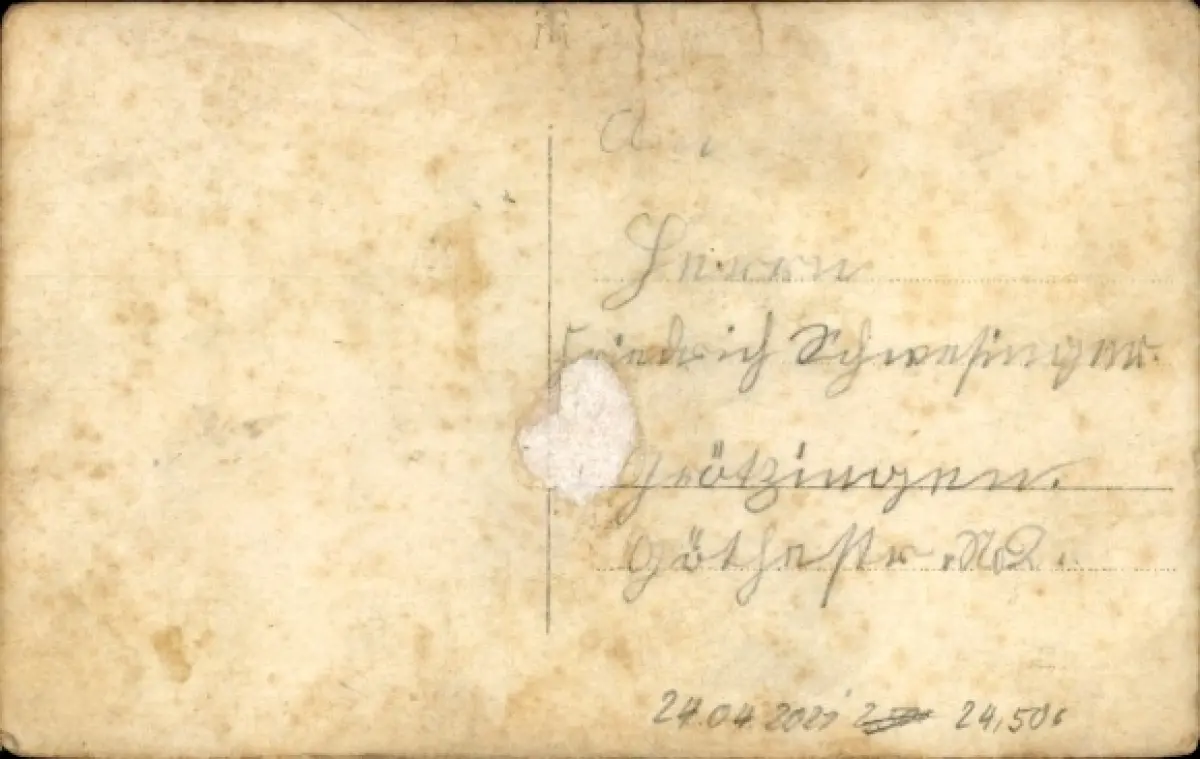 Herrn
Friedrich Schwesinger.
Grötzingen.
Göthestr. No 2.
24.04.2021 24,50€